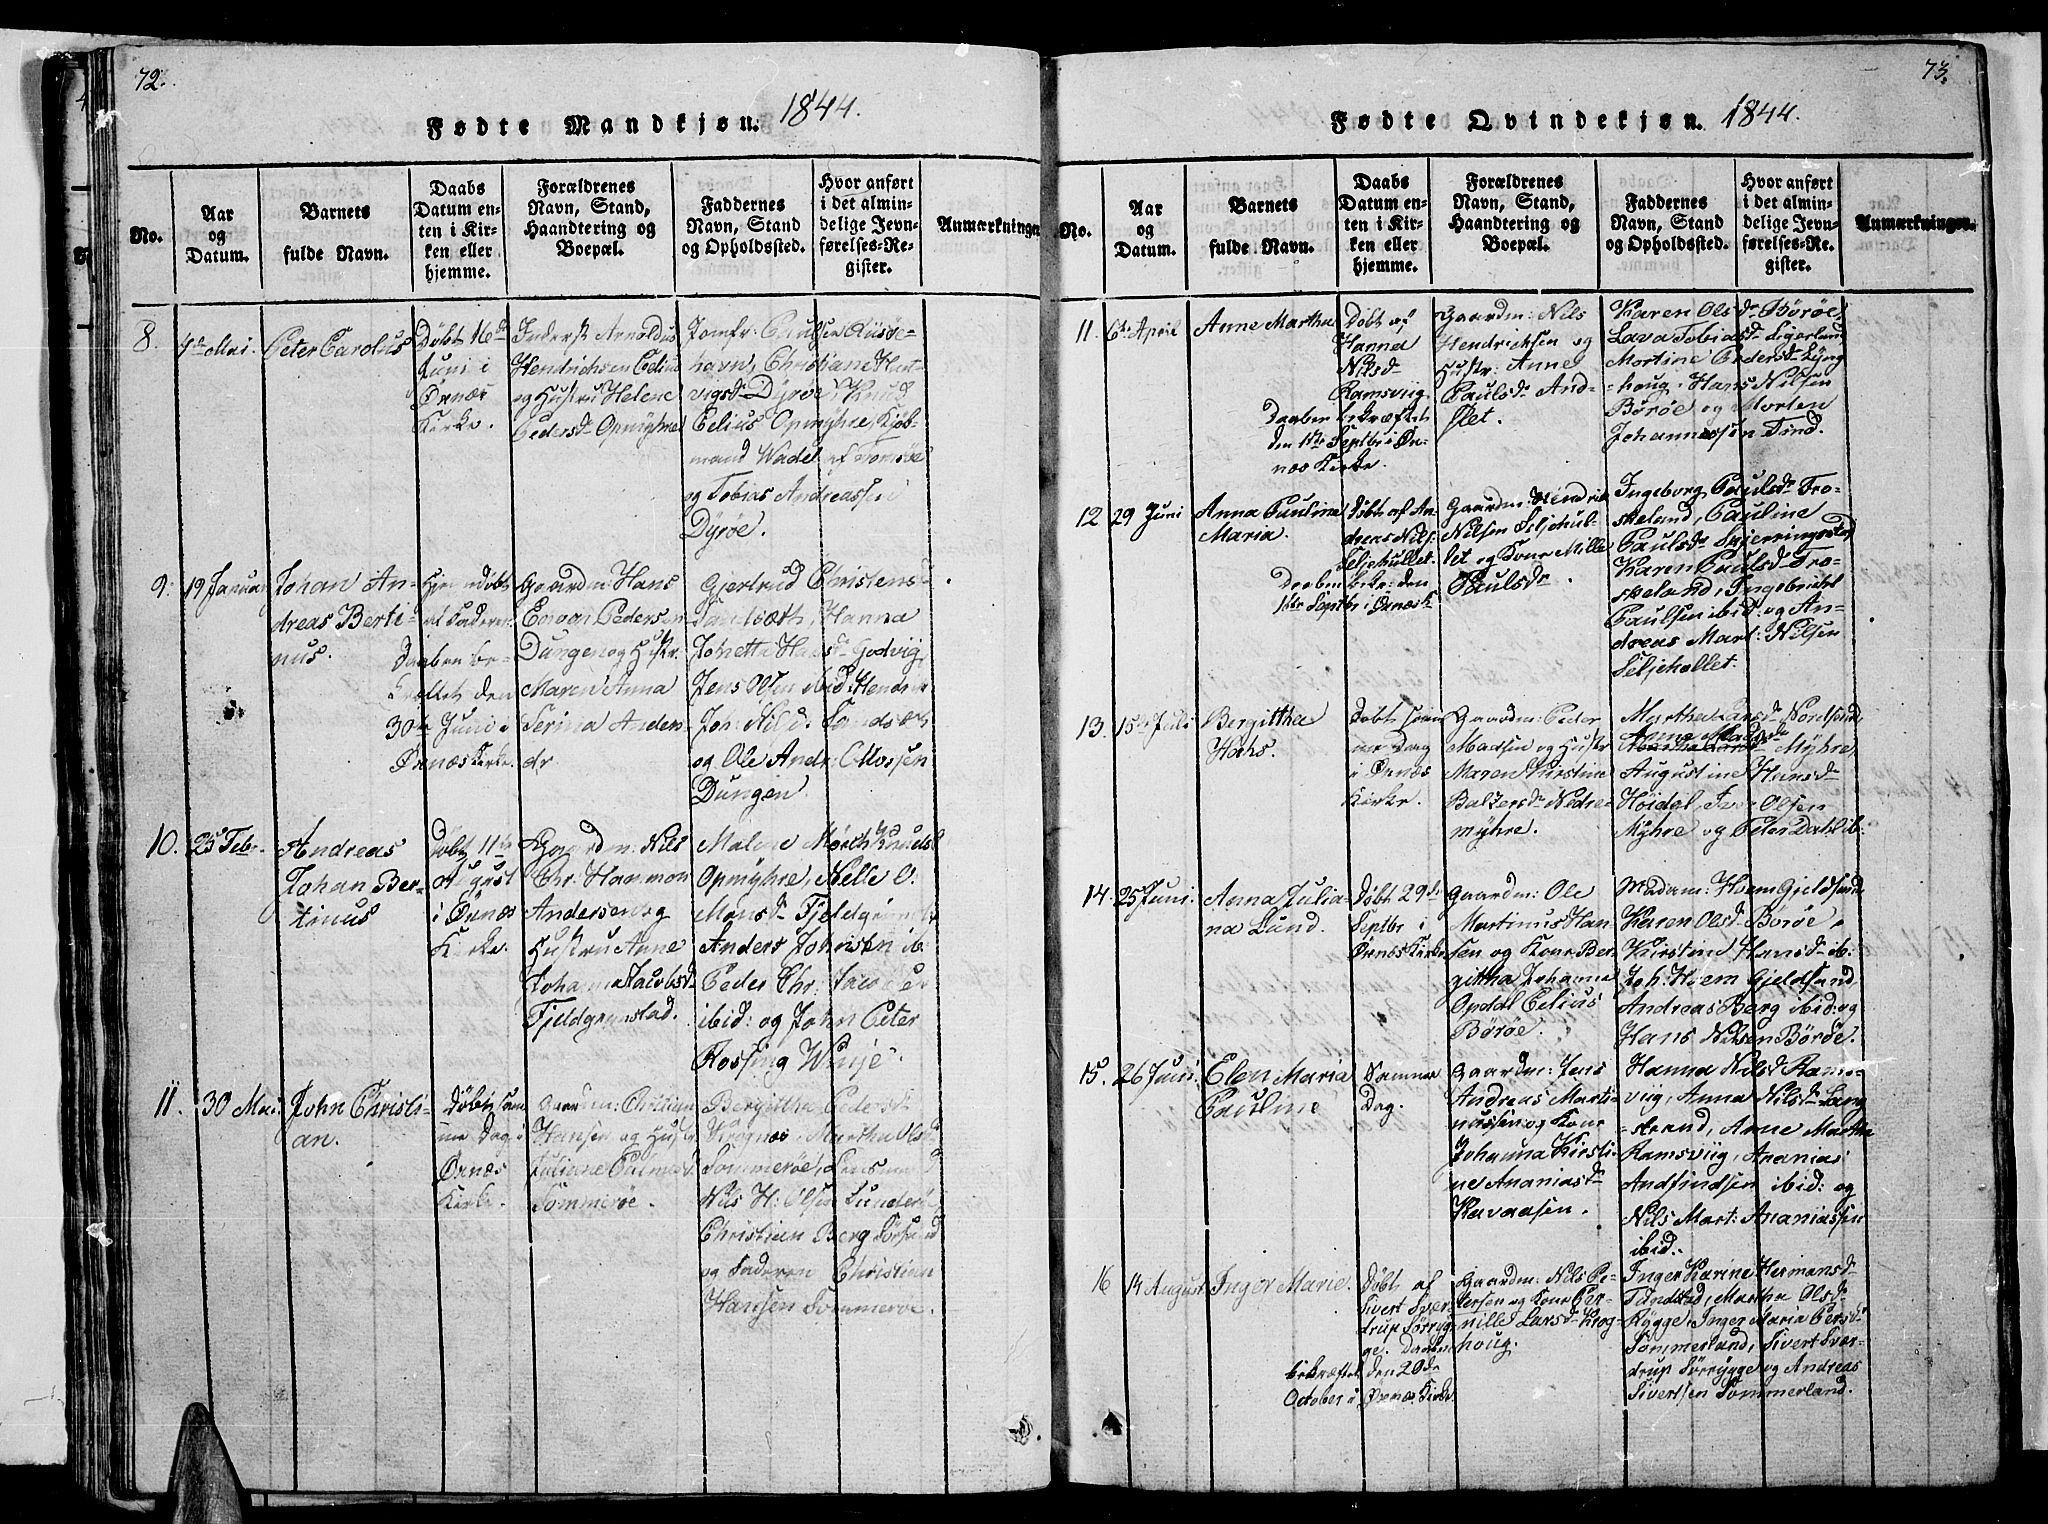 72.
Fødte Mandkjøn. 1844.
No.
Aar og Datum.
Barnets fulde Navn.
Daabs Datum enten i Kirken eller hjemme.
Forældrenes Navn, Stand, Haandtering og Boepæl.
Faddernes Navn, Stand og Opholdssted.
Hvor anført i det almindelige Jevnførelses-Register.
Anmærkninger
8.
4de Mai.
Peter Carolus
Døbt 16de
Juni i
Ørnæs
Kirke.
Inderst Arnoldus
Hendrichsen Celius
og Hustru Helene
Pedersdr Opmyhre
Jomfr: Paulsen Riisøe-
havn, Christiane Hart-
vigsdr Dyrøe, Knud
Celius Opmyhre, Kjøb-
mand Wadel af Tromsøe
og Tobias Andreassen
Dyrøe.
9.
19 Januar
Johan An-
dreas Berti-
nus.
Hjemmedøbt
af Faderen
Daaben be-
kræftet den
30te Juni i
Ørnæs Kirke.
Gaardm: Hans
Enoon Pedersen
Dungen og Hustr.
Maren Anna
Serina Anders
dr
Gjertrud Christensdr
Sandsæt, Hanna
Johetta Hansdr Godvig,
Jens Olsen ibid:
Joh: Nild. Sandsæt
og Ole Andr: Olufsen
Dungen
10.
25 Febr.
Andreas
Johan Ber-
tinus
Døbt 11te
August
i Ørnæs
Kirke.
Gaardm: Nils
Chr. Hammon
Andersen og
Hustru Anne
Johanna Jacobsdr
Fjeldgrynstad.
Malene Mørch Knudsdr
Opmyhre, Nelle O.
Monsdr Fjeldgrynsta
Anders Johnsen ib:
Peder Chr: Jacobsen
ibid: og John Peter
Rossing Winje.
11.
30 Mai
John Christi-
an.
Døbt sam-
me Dag i
Ørnæs
Kirke.
Gaardm: Christian
Hansen og Hustr
Juliane
Sommerøe.
Bergitha Pedersdr
Krognæs, Martha Olsdr
Sommerøe, Lensmand
Nils H: Olsen Sunderø
Christian Berg Sørsand
og Faderen Christian
Hansen Sommerøe.
73.
Fødte Qvindekjøn. 1844.
No.
Aar og Datum.
Barnets fulde Navn.
Daabs Datum enten i Kirken eller hjemme.
Forældrenes Navn, Stand, Haandtering og Boepæl.
Faddernes Navn, Stand og Opholdssted.
Hvor anført i det almindelige Jevnførelses-Register.
Anmærkninger.
11.
6te April
Anne Martha
Døbt af
Hanna
Nilsdr
Ramsviig
Daaben bekræftet
den 1ste Septbr i Ør-
næs Kirke.
Gaardm: Nils
Hendrichsen og
Hustr: Anne
Paulsdr And-
Slet.
Karen Olsdr Børøe,
Lava Tobiasdr Sigerland
Mortine Pedersdr Lyng
houg, Hans Nilsen
Børøe og Morten
Johannessen Tind.
12
29 Juni
Anna Pauline
Maria.
Døbt af An-
dreas Nils:
Seljehullet.
Daaben bekr: den
1ste Septbr i Ørnæs K
Gaardm: Hendrik
Nilsen Seljehul-
let og Kone Mille
Paulsdr.
Ingeborg Paulsdr Tro-
skeland, Pauline
Paulsdr Skjerringsstad,
Karen Paulsdr Tro-
skeland, Ingebricht
Paulsen ibid: og An-
dreas Mart: Nilsen
Seljehollet.
13.
15de Juli
Bergittha
Hahs.
Døbt sam-
me Dag
i Ørnæs
Kirke.
Gaardm: Peder
Madsen og Hustr
Maren Kirstine
Baltzersdr Nedre-
myhre.
Martha Larsdr Nordfjord,
Anne Madsdr
Myhre,
Augustine Hansdr
Høidal, Iver Olsen
Myhre og Peter Dahl ib:
14.
25 Juni.
Anna Julia-
na Lund.
Døbt 29de
Septbr i
Ørnæs Kirke
Gaardm: Ole
Martinus Han-
sen og Kone Ber-
gittha Johanna
Opdal Celius
Børøe.
Madam: Hvem Gjeldsand
Karen Olsdr Børøe,
Kirstine Hansdr ib:
Joh: Hvem Gjeldsand,
Andreas Berg ibid: og
Hans Nilsen Børøe.
15.
26 Juni.
Elen Maria
Pauline
Samme
Dag.
Gaardm: Jens
Andreas Marti-
nussen og Kone
Johanna Kirsti-
ne Ananiasdr
Kavaasen.
Hanna Nilsdr Rams-
viig, Anna Nilsdr Lang
strand, Anne Martha
Ramsviig, Ananias
Andfindsen ibid: og
Nils Mart: Ananiassen
ibid:
16
14 August
Inger Marie.
Døbt af
Sivert Sver-
drup Sørryg-
ge. Daaben
bekræftet den 20de
October i Ørnæs Kirke.
Gaardm: Nils Pe-
tersen og Kone Per-
nille Larsdr Krog-
houg.
Inger Karine Hermansdr
Tandstad, Martha Olsdr
Rygge, Inger Maria Persdr
Sommerland, Sivert Sver-
drup Sørrygge og Andreas
Sivertsen Sommerland.